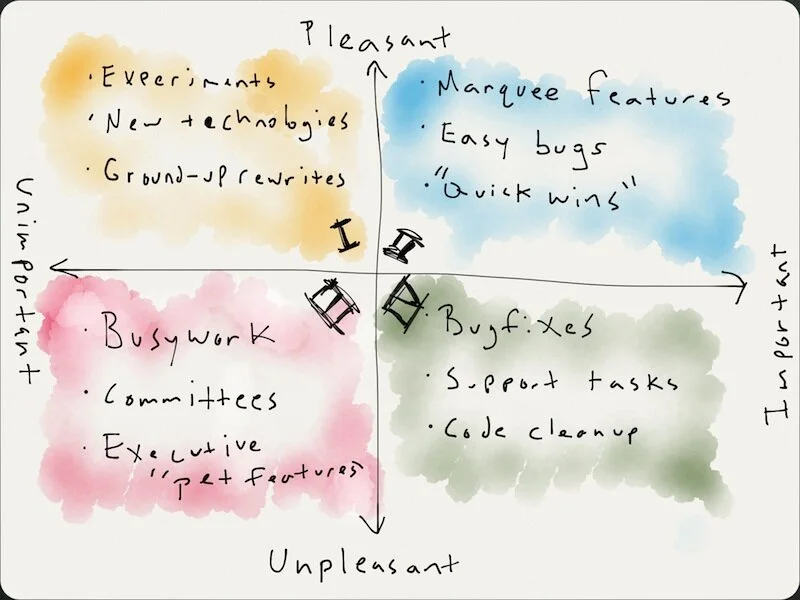 Pleasant
· Experiments
· New technologies
· Ground-up rewrites
I
· Marquee features
· Easy bugs
· "Quick wins"
II
Unimportant
Important
III
· Busywork
· Committees
· Executive
"pet features"
IV
· Bugfixes
· Support tasks
· Code cleanup
Unpleasant